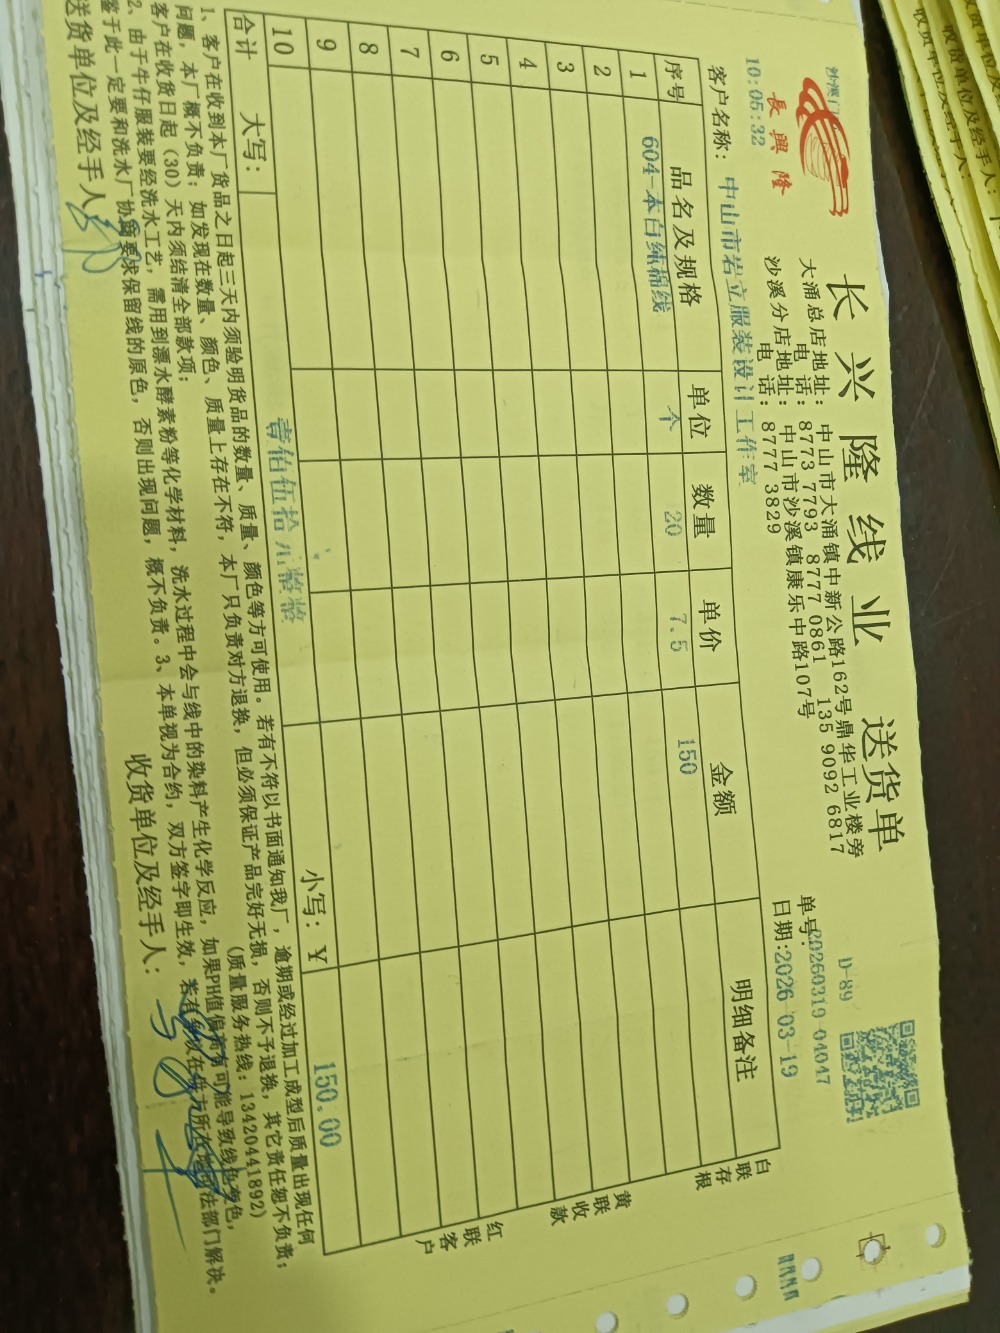 長興隆
长兴隆线业 送货单
D-89
大涌总店地址: 中山市大涌镇中新公路162号鼎华工业楼旁
电 话: 8773 7793 8777 0861 135 9092 6817
沙溪分店地址: 中山市沙溪镇康乐中路107号
电 话: 8777 3829
单号:20260319-04047
10:05:32
日期:2026-03-19
客户名称: 中山市岩立服装设计工作室
序号 品名及规格 单位 数量 单价 金额 明细备注
1 604-本白纯棉线 个 20 7.5 150
2
3
4
5
6
7
8
9
10
合计 大写: 壹佰伍拾元整整 小写: ¥ 150.00
白联存根
黄联收款
红联客户
1、客户在收到本厂货品之日起三天内须验明货品的数量、质量、颜色等方可使用。若有不符以书面通知我厂，逾期或经过加工成型后质量出现任何
问题，本厂概不负责；如发现在数量、颜色、质量上存在不符，本厂只负责对方退换，但必须保证产品完好无损，否则不予退换，其它责任恕不负责；
客户在收货日起（30）天内须结清全部款项； (质量服务热线: 13420441892)
2、由于牛仔服装要经洗水工艺，需用到漂水酵素粉等化学材料，洗水过程中会与线中的染料产生化学反应，如果PH值偏高有可能导致线色变色，
鉴于此一定要和洗水厂协调要求保留线的原色，否则出现问题，概不负责。3、本单视为合约，双方签字即生效，若有
法部门解决。
送货单位及经手人:
收货单位及经手人: